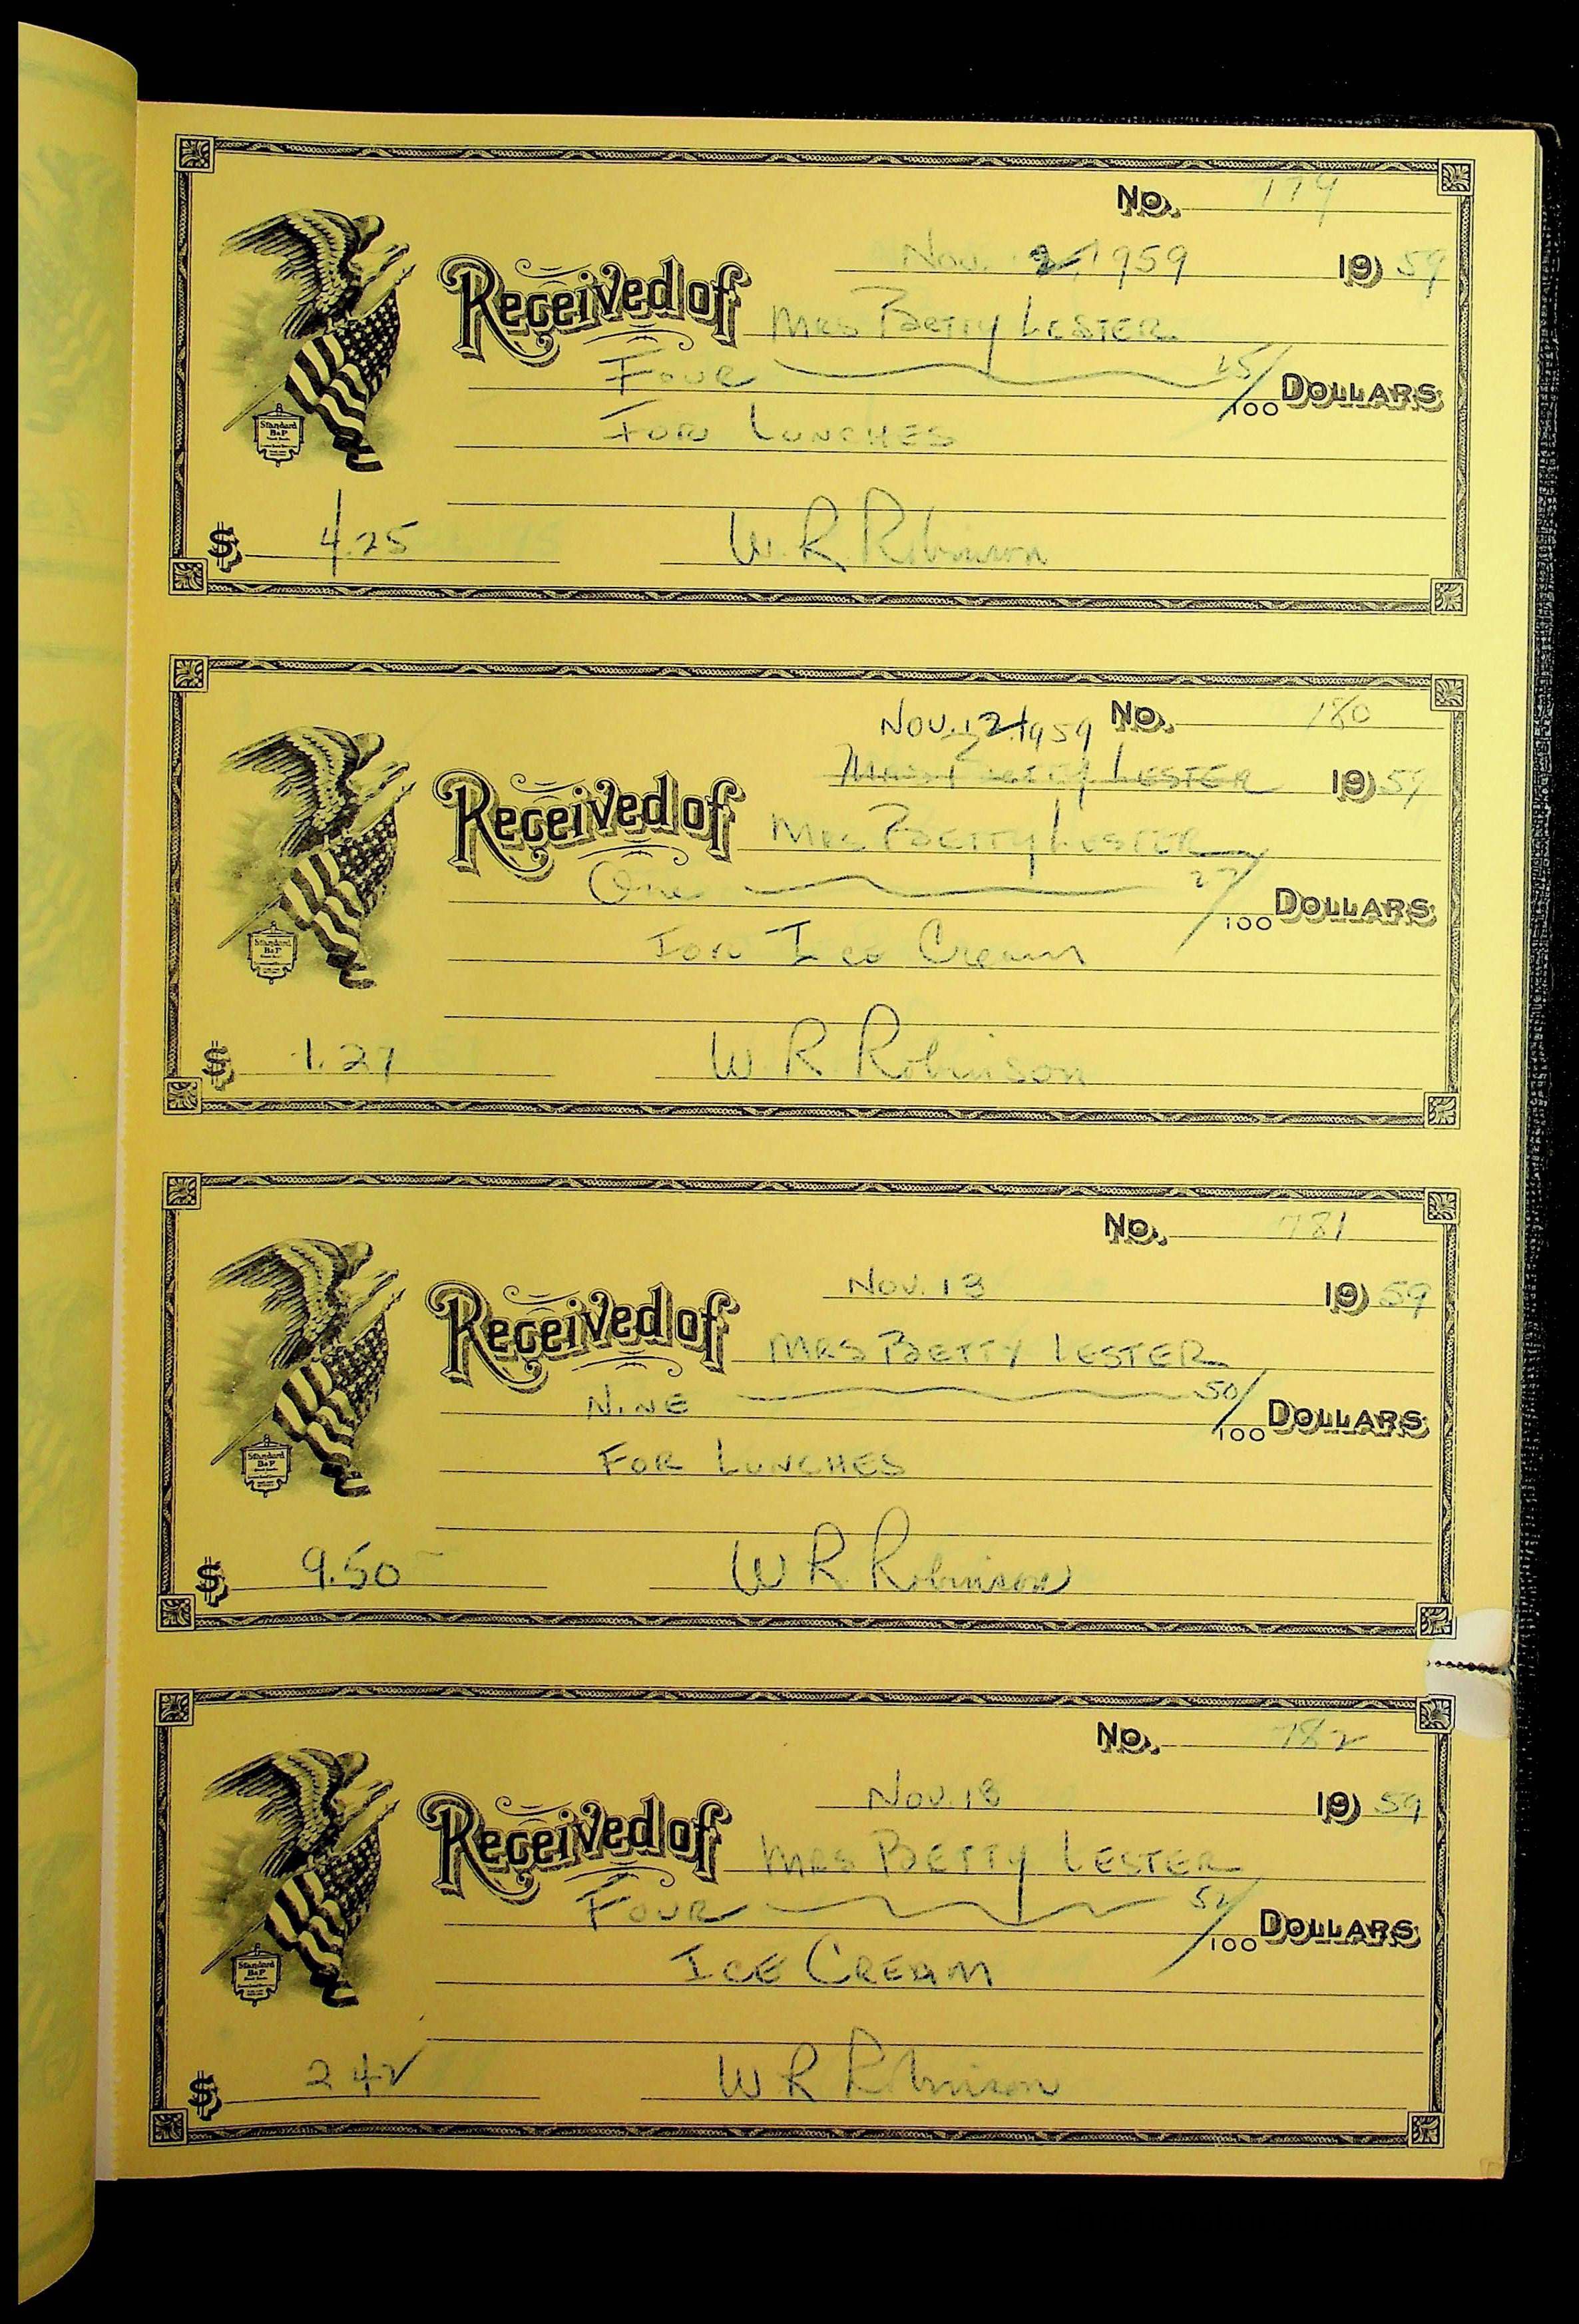 No. 779
Nov. 2, 1959 1959
Received of Mrs Betty Lester
Four 25/100 Dollars
For Lunches
$ 4.25 W. R. Robinson
Standard
B&P
Nov. 12, 1959 No. 780
Mrs Betty Lester 1959
Received of Mrs Betty Lester
One 27/100 Dollars
For Ice Cream
$ 1.27 W. R. Robinson
Standard
B&P
No. 781
Nov. 13 1959
Received of MRS BETTY LESTER
NINE 50/100 Dollars
FOR LUNCHES
$ 9.50 W R Robinson
Standard
B&P
No. 782
Nov. 13 1959
Received of MRS BETTY LESTER
FOUR 52/100 Dollars
ICE CREAM
$ 2 42 W R Robinson
Standard
B&P